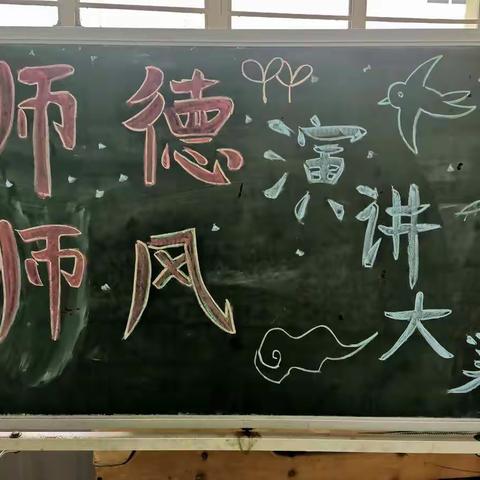 师德
师风
演讲大